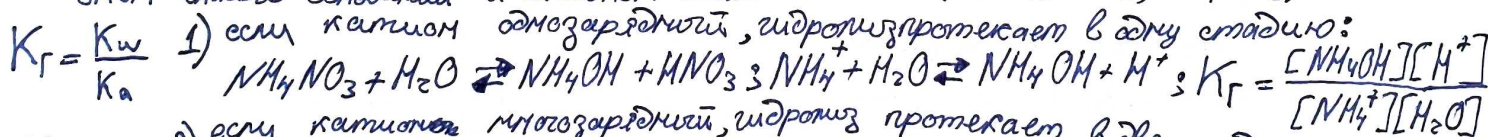 1) если катион однозарядный, гидролиз протекает в одну стадию:
Kг = Kw / Kа NH4NO3 + H2O ⇄ NH4OH + HNO3; NH4⁺ + H2O ⇄ NH4OH + H⁺; Kг = [NH4OH][H⁺] / [NH4⁺][H2O]
2) если катион многозарядный, гидролиз протекает в